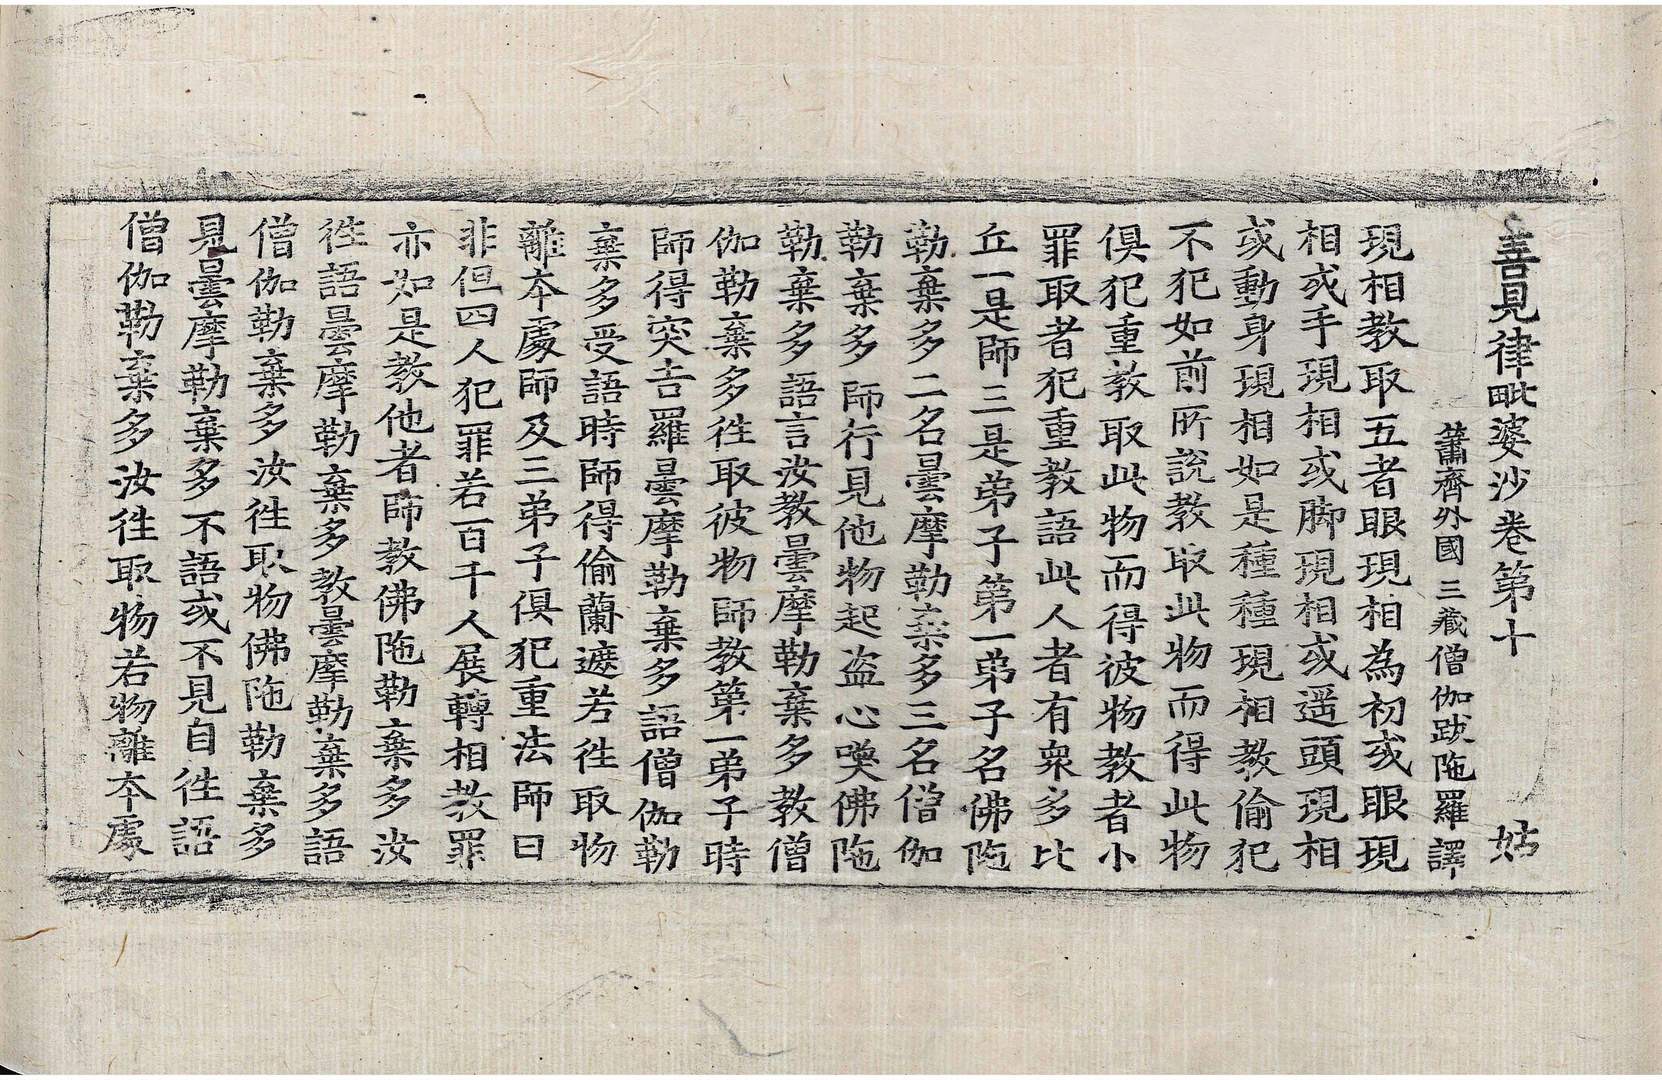 善見律毗婆沙卷第十 姑
蕭齊外國三藏僧伽跋陁羅譯
現相教取五者眼現相為初或眼現
相或手現相或脚現相或遥頭現相
或動身現相如是種種現相教偷犯
不犯如前所說教取此物而得此物
俱犯重教取此物而得彼物教者小
罪取者犯重教語此人者有衆多比
丘一是師三是弟子第一弟子名佛陁
勒棄多二名曇摩勒棄多三名僧伽
勒棄多師行見他物起盗心喚佛陁
勒棄多語言汝教曇摩勒棄多教僧
伽勒棄多徃取彼物師教第一弟子時
師得突吉羅曇摩勒棄多語僧伽勒
棄多受語時師得偷蘭遮若徃取物
離本處師及三弟子俱犯重法師曰
非但四人犯罪若百千人展轉相教罪
亦如是教他者師教佛陁勒棄多汝
徃語曇摩勒棄多教曇摩勒棄多語
僧伽勒棄多汝徃取物佛陁勒棄多
見曇摩勒棄多不語或不見自徃語
僧伽勒棄多汝徃取物若物離本處